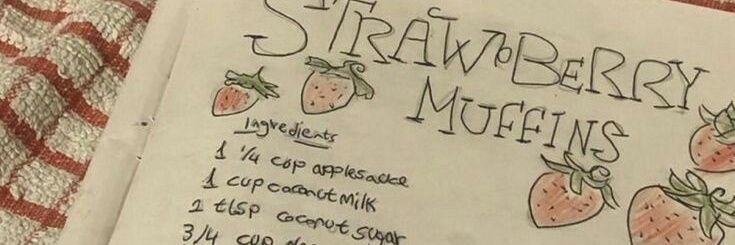 STRAWBERRY
MUFFINS
Ingredients
1 1/4 cup applesauce
1 cup coconut milk
2 tbsp coconut sugar
3/4 cup